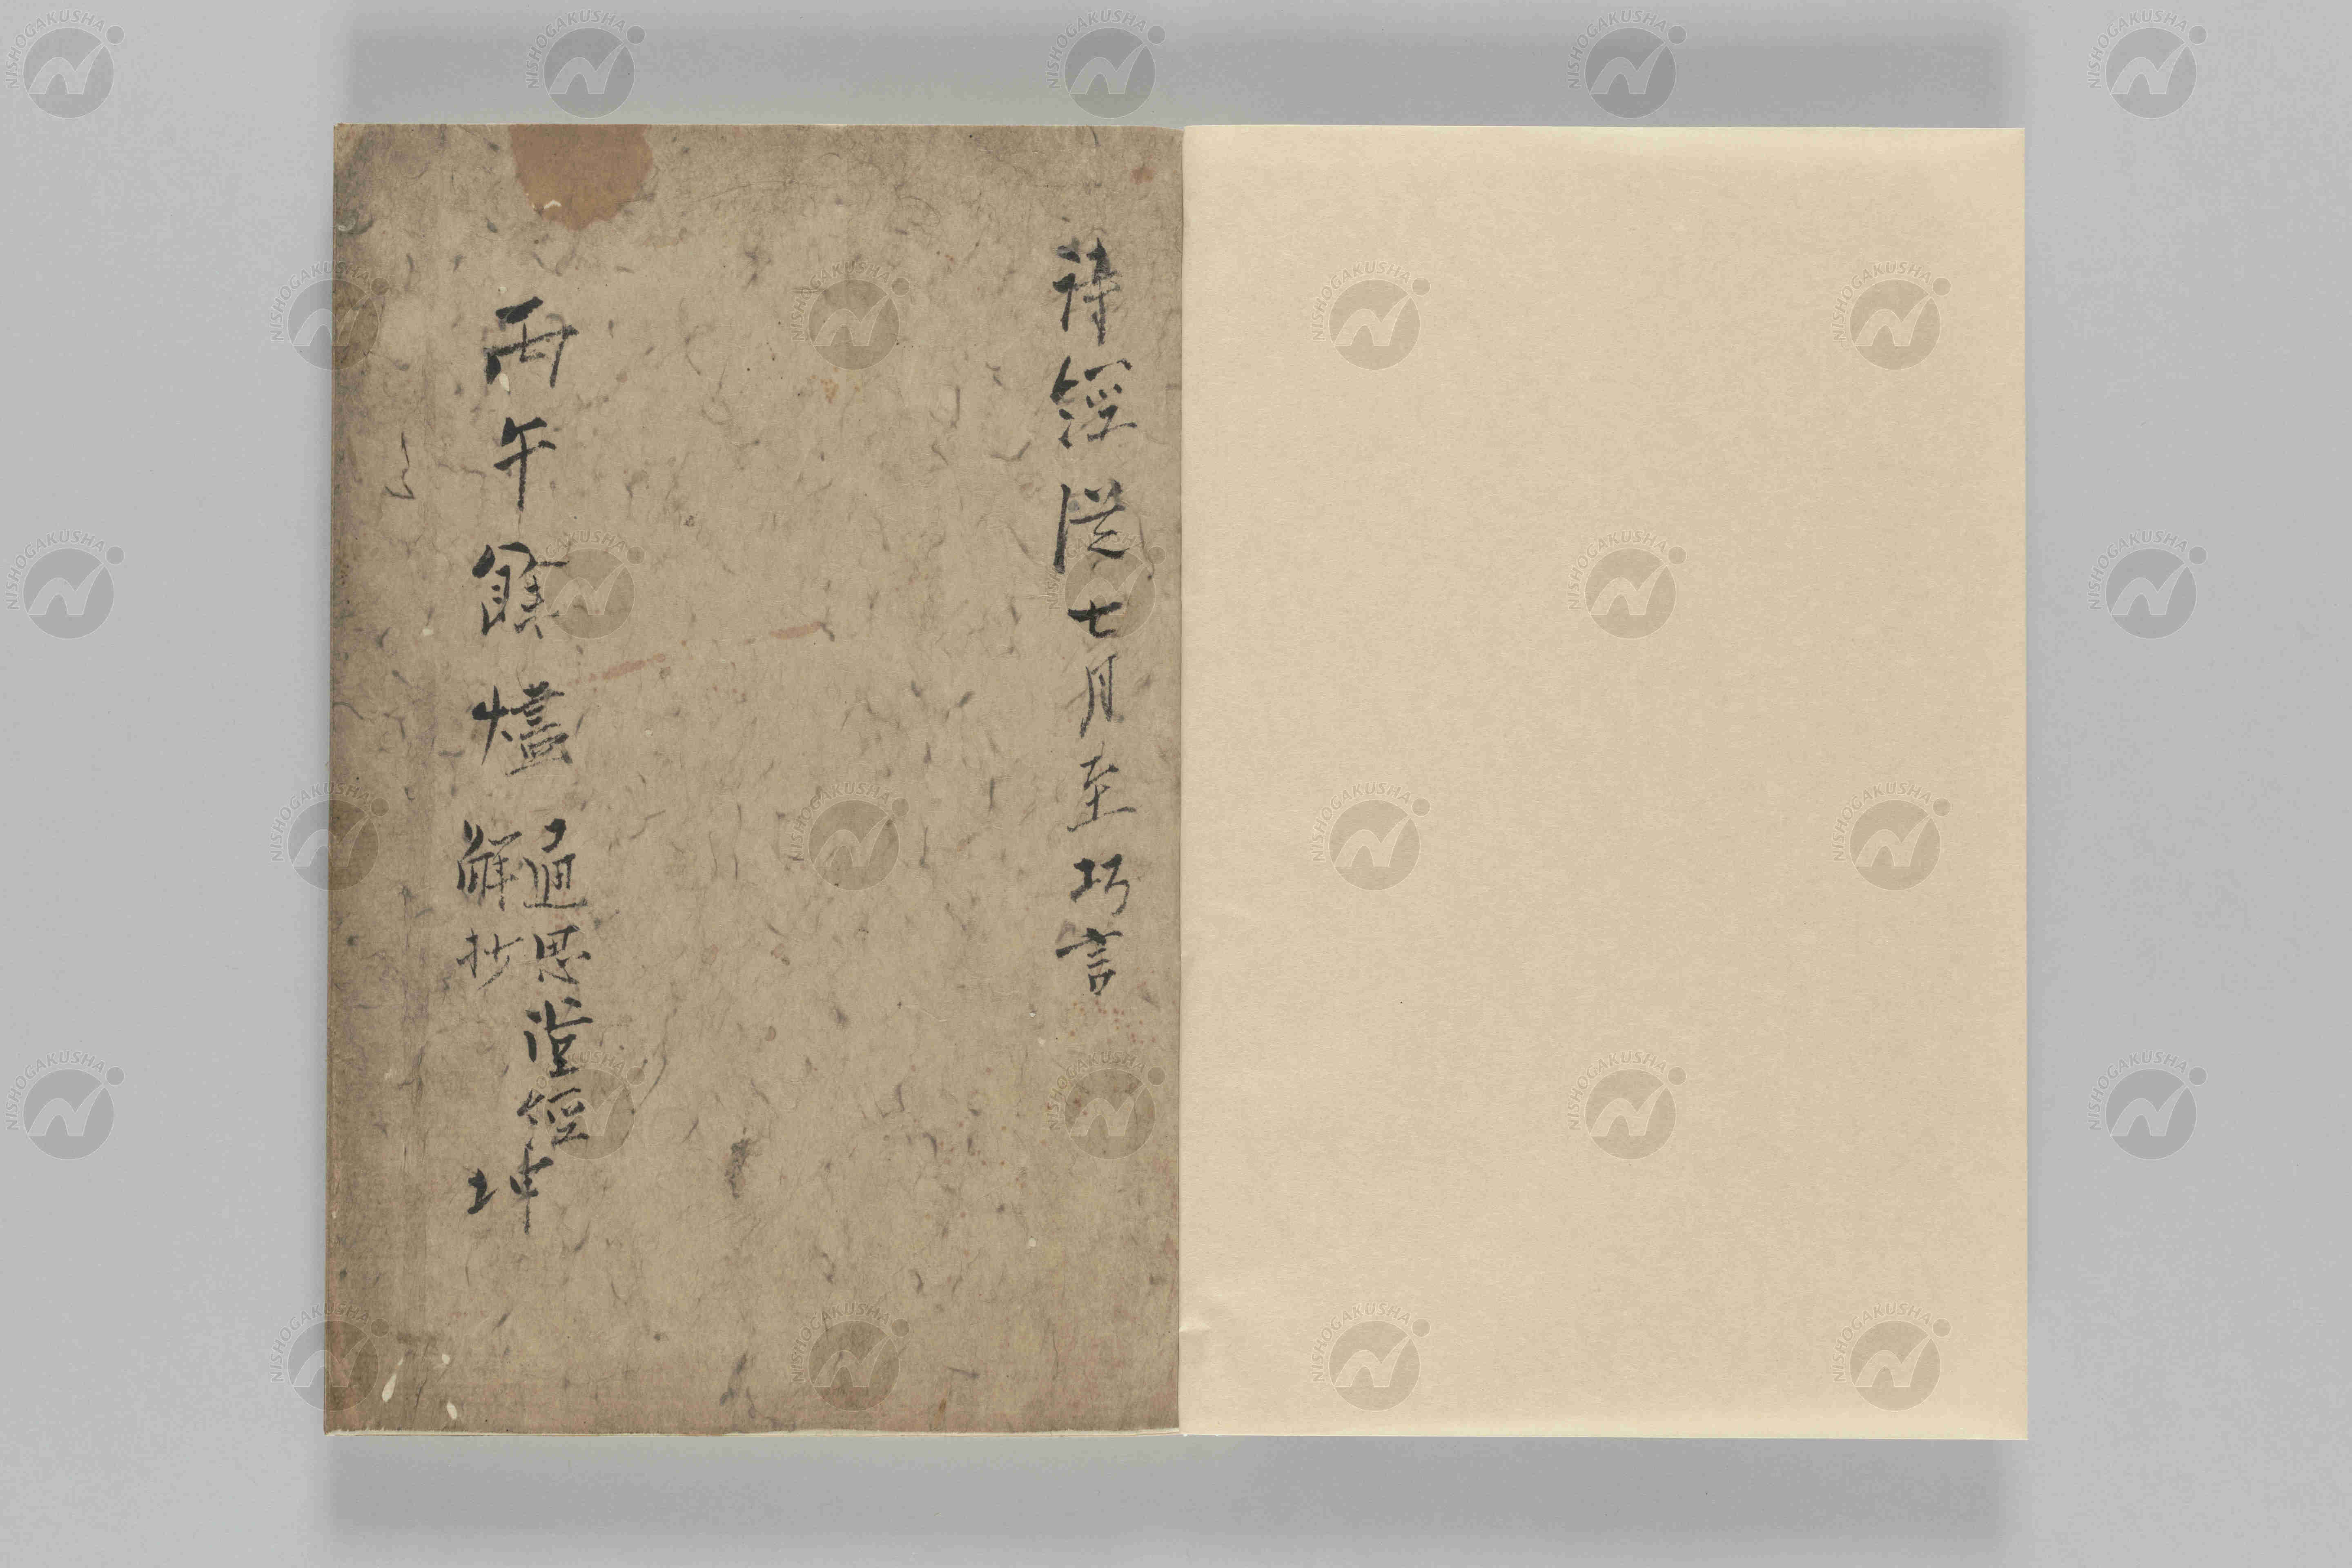 詩經従七月至巧言
丙午餘燼
通思堂經
解抄
坤
NISHOGAKUSHA